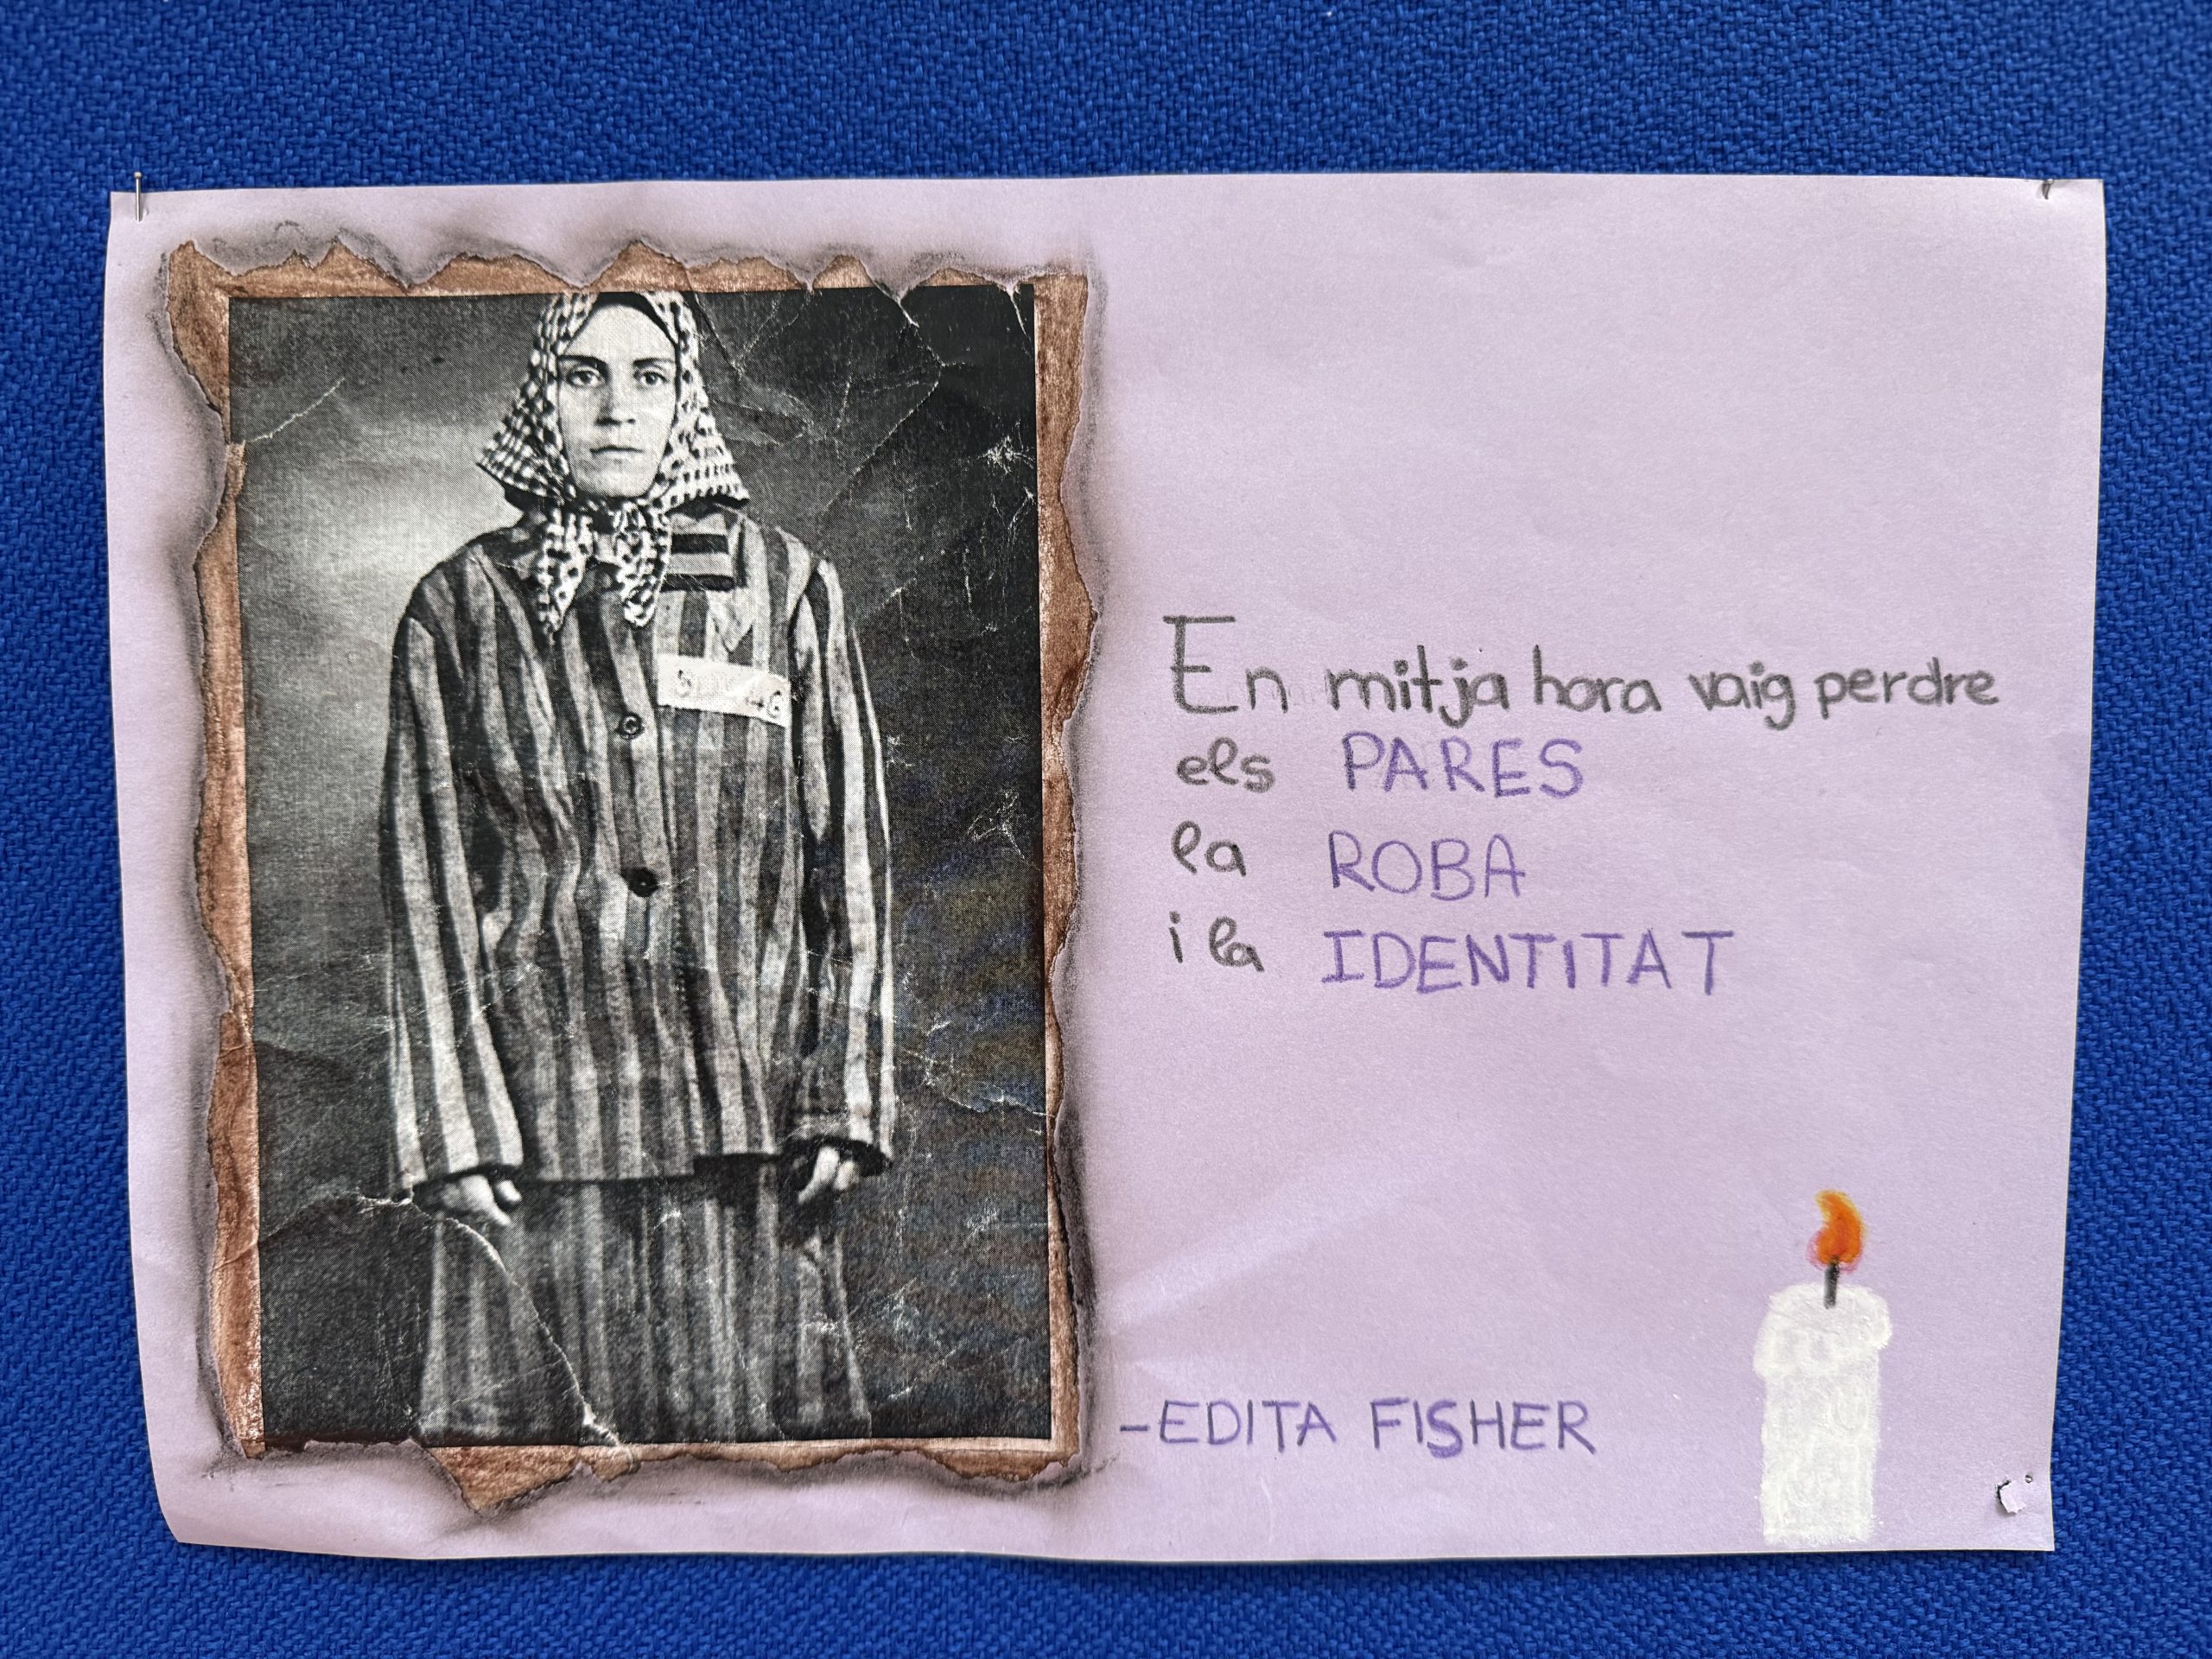 En mitja hora vaig perdre
els PARES
la ROBA
i la IDENTITAT
-EDITA FISHER